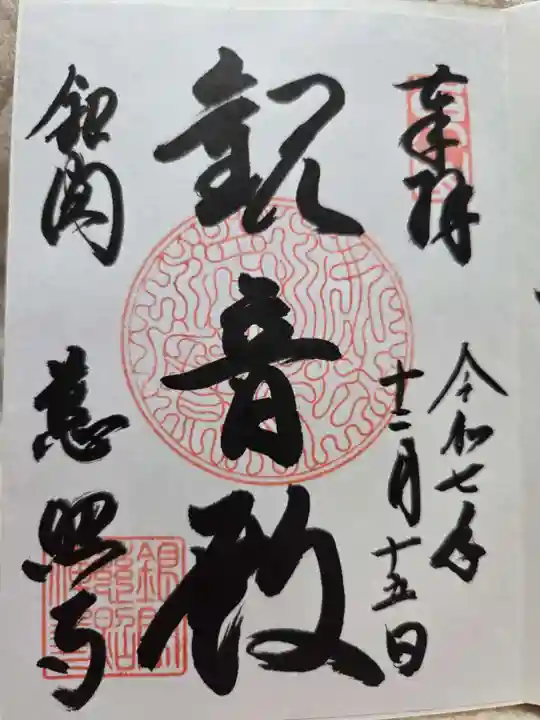 奉拝
令和七年
十二月十五日
観音殿
銀閣
慈照寺